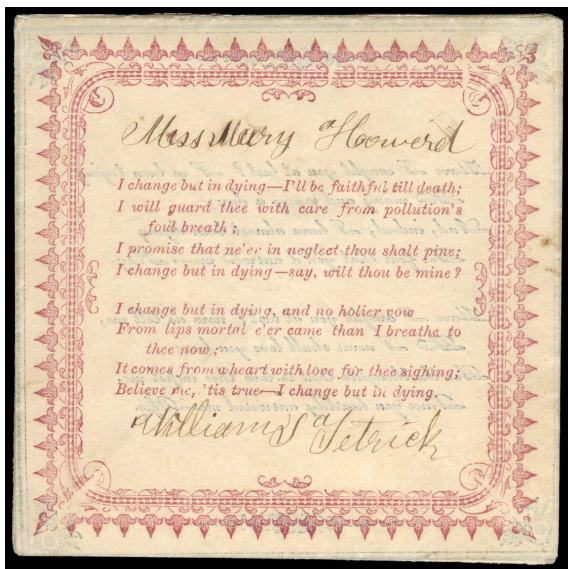 Miss Mary Howerd
I change but in dying—I'll be faithful till death;
I will guard thee with care from pollution's
foul breath;
I promise that ne'er in neglect thou shalt pine;
I change but in dying—say, wilt thou be mine?
I change but in dying, and no holier vow
From lips mortal e'er came than I breathe to
thee now;
It comes from a heart with love for thee sighing;
Believe me, 'tis true—I change but in dying.
William S Tetrick